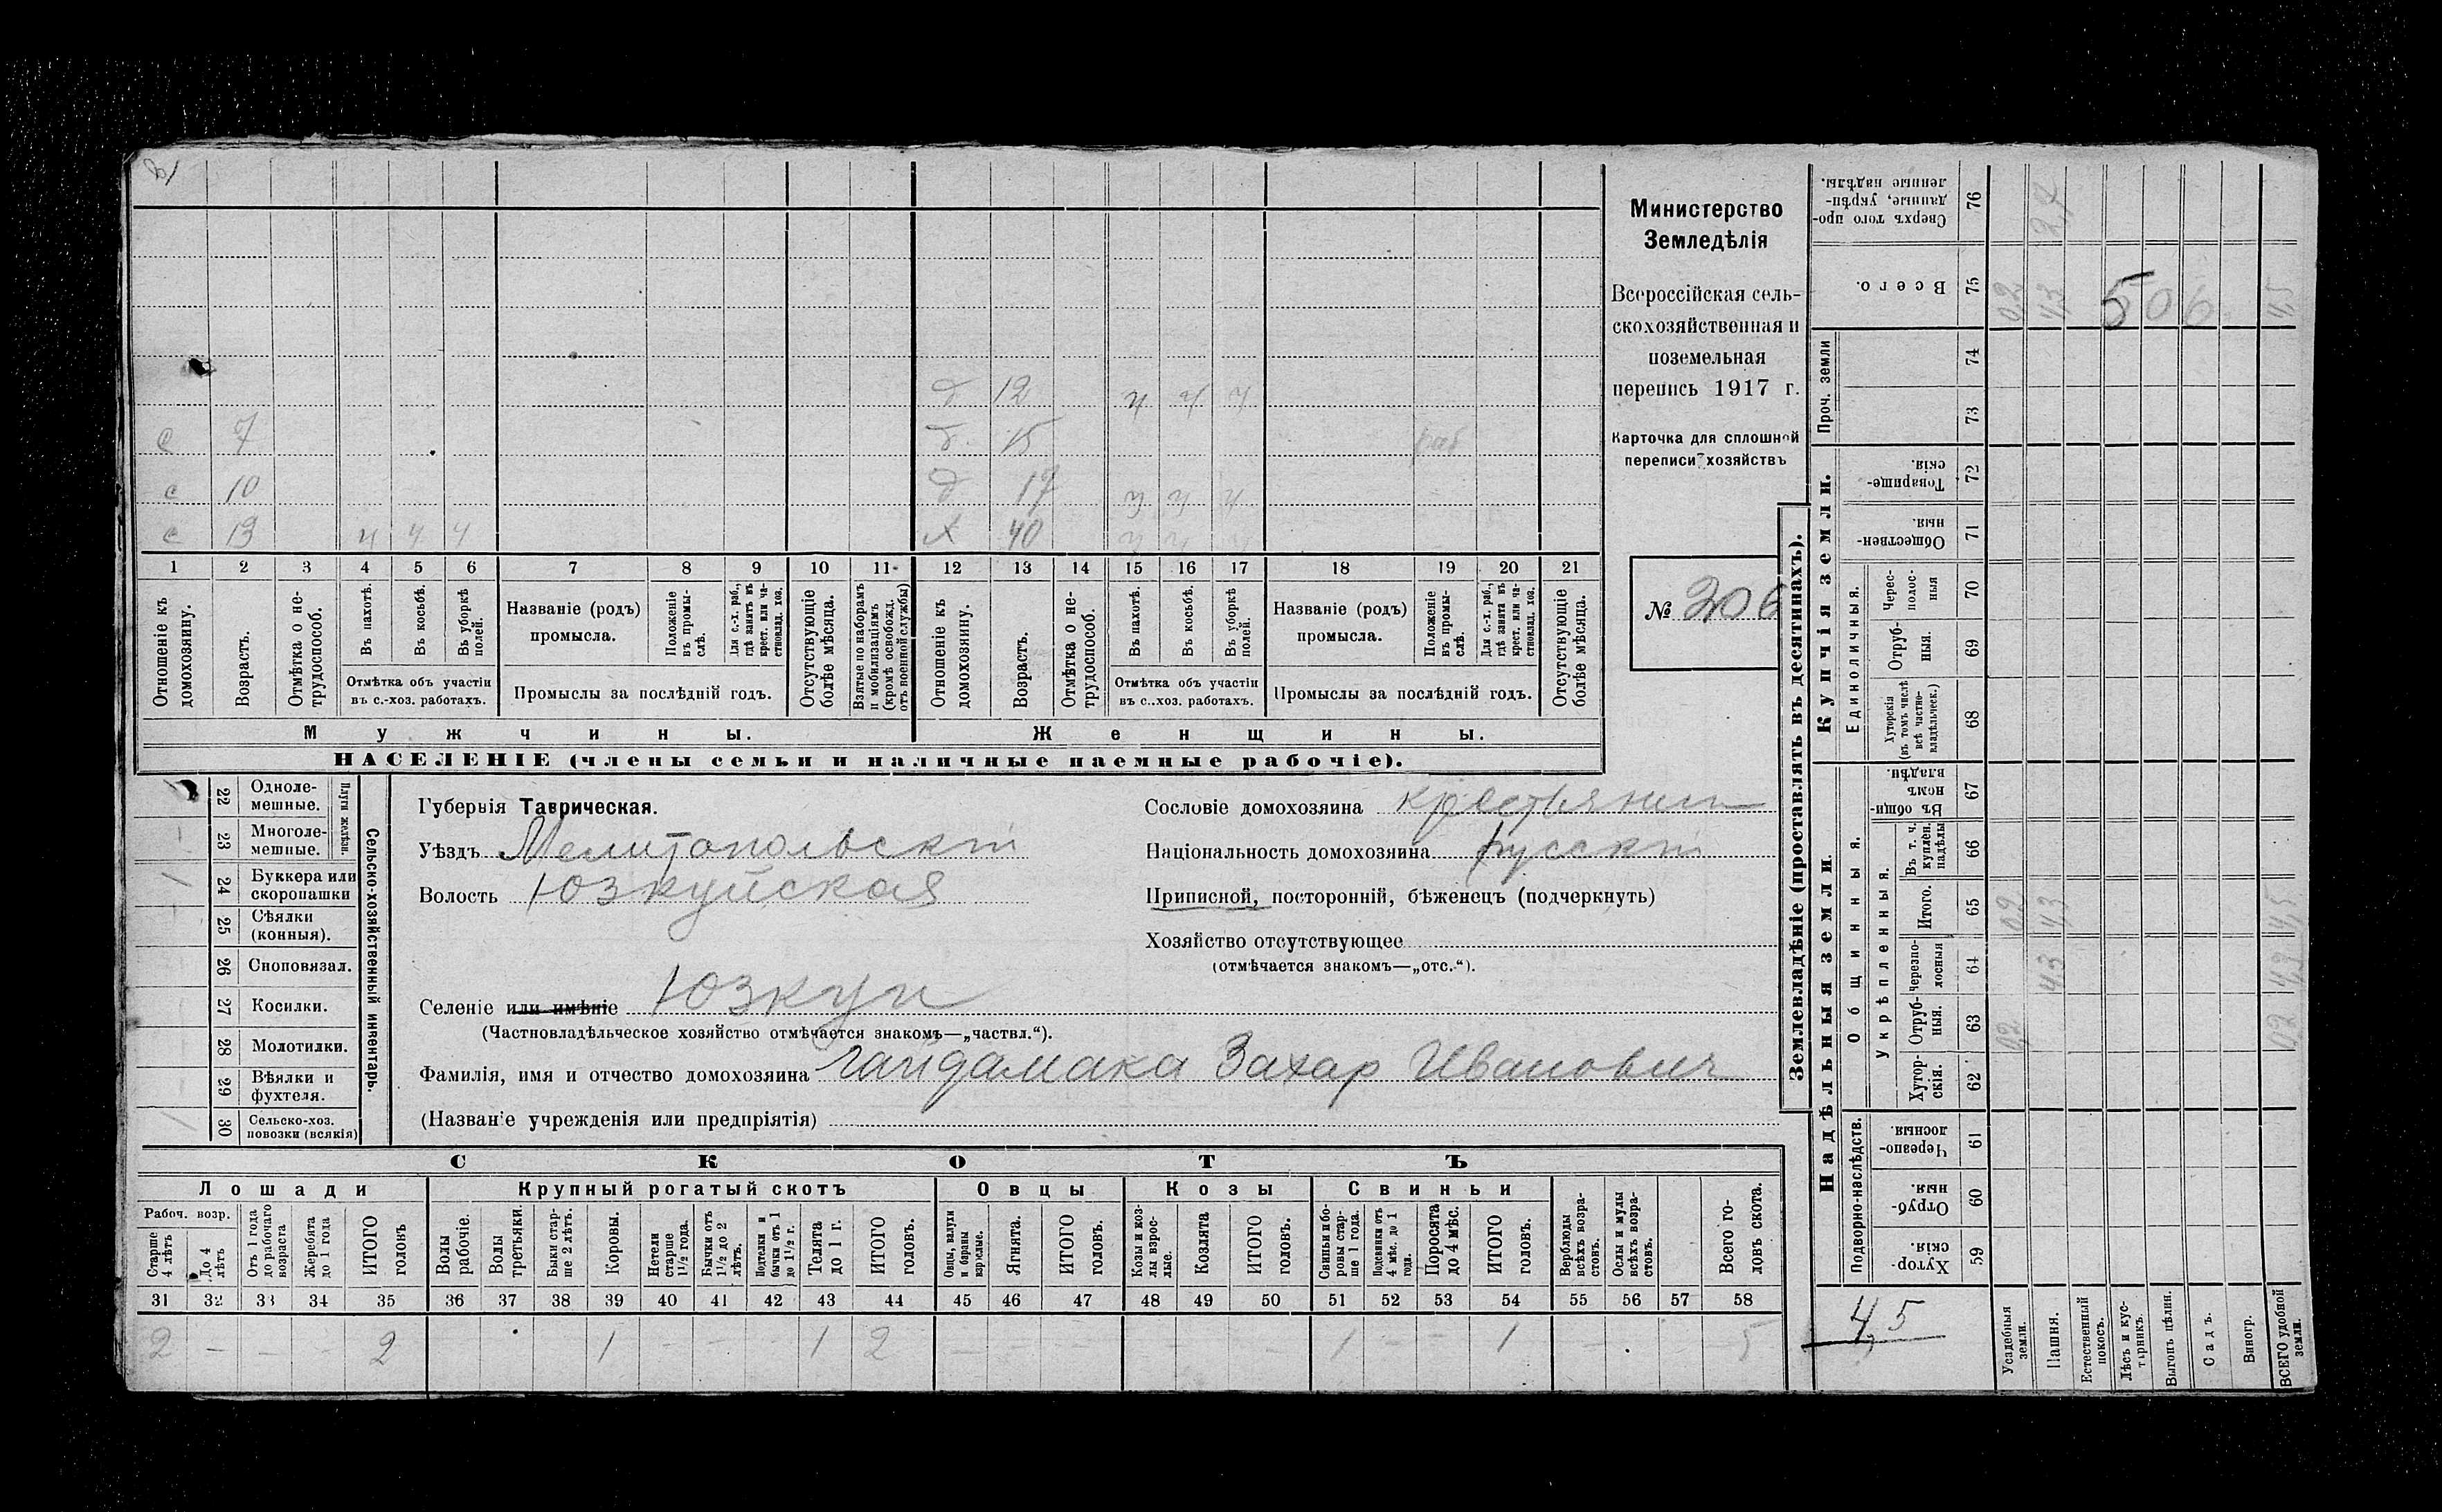 д 12 ч ч ч
с 7 д. 15 раб
с 10 д 17 ч ч ч
с 13 ч ч ч х 40 ч ч ч
1 2 3 4 5 6 7 8 9 10 11 12 13 14 15 16 17 18 19 20 21
Отношеніе къ домохозяину.
Возрастъ.
Отмѣтка о не-трудоспособ.
Въ пахотѣ.
Въ косьбѣ.
Въ уборкѣ полей.
Отмѣтка объ участіи
въ с.-хоз. работахъ.
Названіе (родъ)
промысла.
Положеніе въ промы-слѣ.
Для с.-х. раб., гдѣ занятъ въ крест. или ча-стновлад. хоз.
Промыслы за послѣдній годъ.
Отсутствующіе болѣе мѣсяца.
Взятые по наборамъ и мобилизаціямъ (кромѣ освобожд. отъ военной службы)
Отношеніе къ домохозяину.
Возрастъ.
Отмѣтка о не-трудоспособ.
Въ пахотѣ.
Въ косьбѣ.
Въ уборкѣ полей.
Отмѣтка объ участіи
въ с..хоз. работахъ.
Названіе (родъ)
промысла.
Положеніе въ промы-слѣ.
Для с.-х. раб., гдѣ занята въ крест. или ча-стновлад. хоз.
Промыслы за послѣдній годъ.
Отсутствующіе болѣе мѣсяца.
Мужчины. Женщины.
НАСЕЛЕНІЕ (члены семьи и наличные наемные рабочіе).
Министерство
Земледѣлія
Всероссійская сель-
скохозяйственная и
поземельная
перепись 1917 г.
Карточка для сплошной
переписи хозяйствъ
№ 206
22 Одноле-мешные.
23 Многоле-мешные.
Плуги желѣзн.
/ 24 Буккера или скоропашки
25 Сѣялки (конныя).
26 Сноповязал.
27 Косилки.
28 Молотилки.
29 Вѣялки и фухтеля.
/ 30 Сельско-хоз. повозки (всякія)
Сельско-хозяйственный инвентарь.
Губернія Таврическая.
Уѣздъ Мелитопольскій
Волость Юзкуйская
Селеніе или имѣніе Юзкуи
(Частновладѣльческое хозяйство отмѣчается знакомъ—„частвл.“).
Фамилія, имя и отчество домохозяина Гайдамака Захар Иванович
(Названіе учрежденія или предпріятія)
Сословіе домохозяина крестьянин
Національность домохозяина русскій
Приписной, посторонній, бѣженецъ (подчеркнуть)
Хозяйство отсутствующее
(отмѣчается знакомъ—„отс.“).
СКОТЪ
Лошади Крупный рогатый скотъ Овцы Козы Свиньи
Рабоч. возр.
Старше 4 лѣтъ
До 4 лѣтъ
Отъ 1 года до рабочаго возраста
Жеребята до 1 года
ИТОГО головъ
Волы рабочіе.
Волы третьяки.
Быки стар-ше 2 лѣтъ.
Коровы.
Нетели старше 1½ года.
Бычки отъ 1½ до 2 лѣтъ.
Подтелки и бычки отъ 1 до 1½ г.
Телята до 1 г.
ИТОГО головъ.
Овцы, валухи и бараны взрослые.
Ягнята.
ИТОГО головъ.
Козы и коз-лы взрос-лые.
Козлята
ИТОГО головъ.
Свиньи и бо-ровы стар-ше 1 года.
Подсвинки отъ 4 мѣс. до 1 года.
Поросята до 4 мѣс.
ИТОГО головъ.
Верблюды всѣхъ возра-стовъ.
Ослы и мулы всѣхъ возра-стовъ.
Всего го-ловъ скота.
31 32 33 34 35 36 37 38 39 40 41 42 43 44 45 46 47 48 49 50 51 52 53 54 55 56 57 58
2 – – – 2 1 – – – 1 2 – – – – – – 1 – – 1 – 5
Землевладѣніе (проставлять въ десятинахъ).
Купчія земли.
Надѣльныя земли.
Сверхъ того про-данные, укрѣп-ленные надѣлы. 76 2,4
Всего. 75 0,2 4,3 506 4,5
Проч. земли 74
73
Товарище-скія. 72
Обществен-ныя. 71
Единоличныя.
Черес-полос-ныя 70
Отруб-ныя. 69
Хуторскія (въ томъ числѣ всѣ частно-владѣльческ.) 68
Общинныя.
Въ общи-номъ владѣн. 67
Укрѣпленныя.
Въ т. ч. куплен. надѣлы 66
Итого. 65 0,2 4,3 4,5
Черезпо-лосныя 64 4,3 4,3
Отруб-ныя. 63 0,2 0,2
Хутор-скія. 62
Подворно-наслѣдств.
Черезпо-лосныя. 61
Отруб-ныя. 60
Хутор-скія. 59
4,5
Усадебныя земли.
Пашня.
Естественный покосъ.
Лѣсъ и кус-тарникъ.
Выгонъ цѣлин.
Садъ.
Виногр.
ВСЕГО удобной земли.